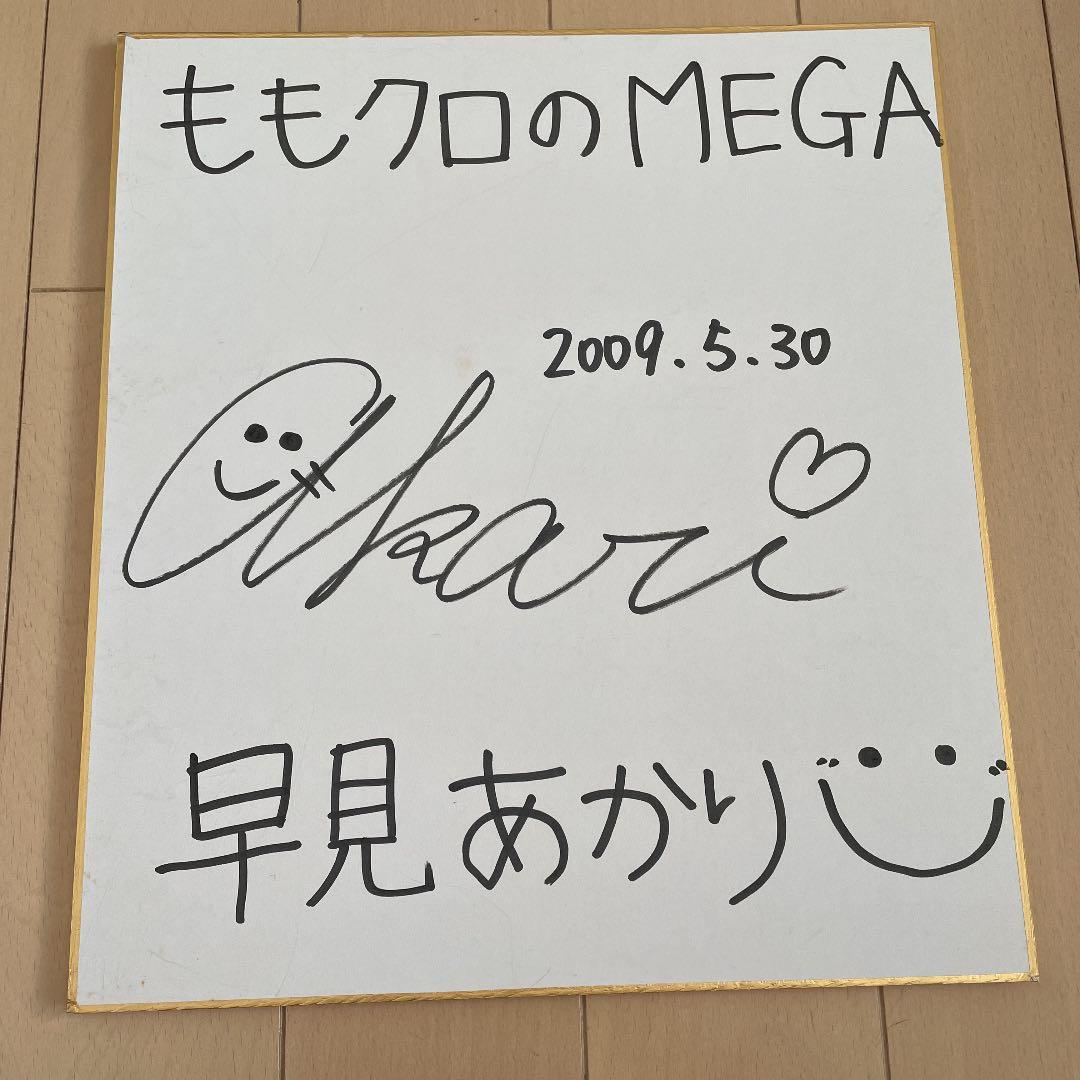 ももクロのMEGA
2009.5.30
Akari
早見あかり